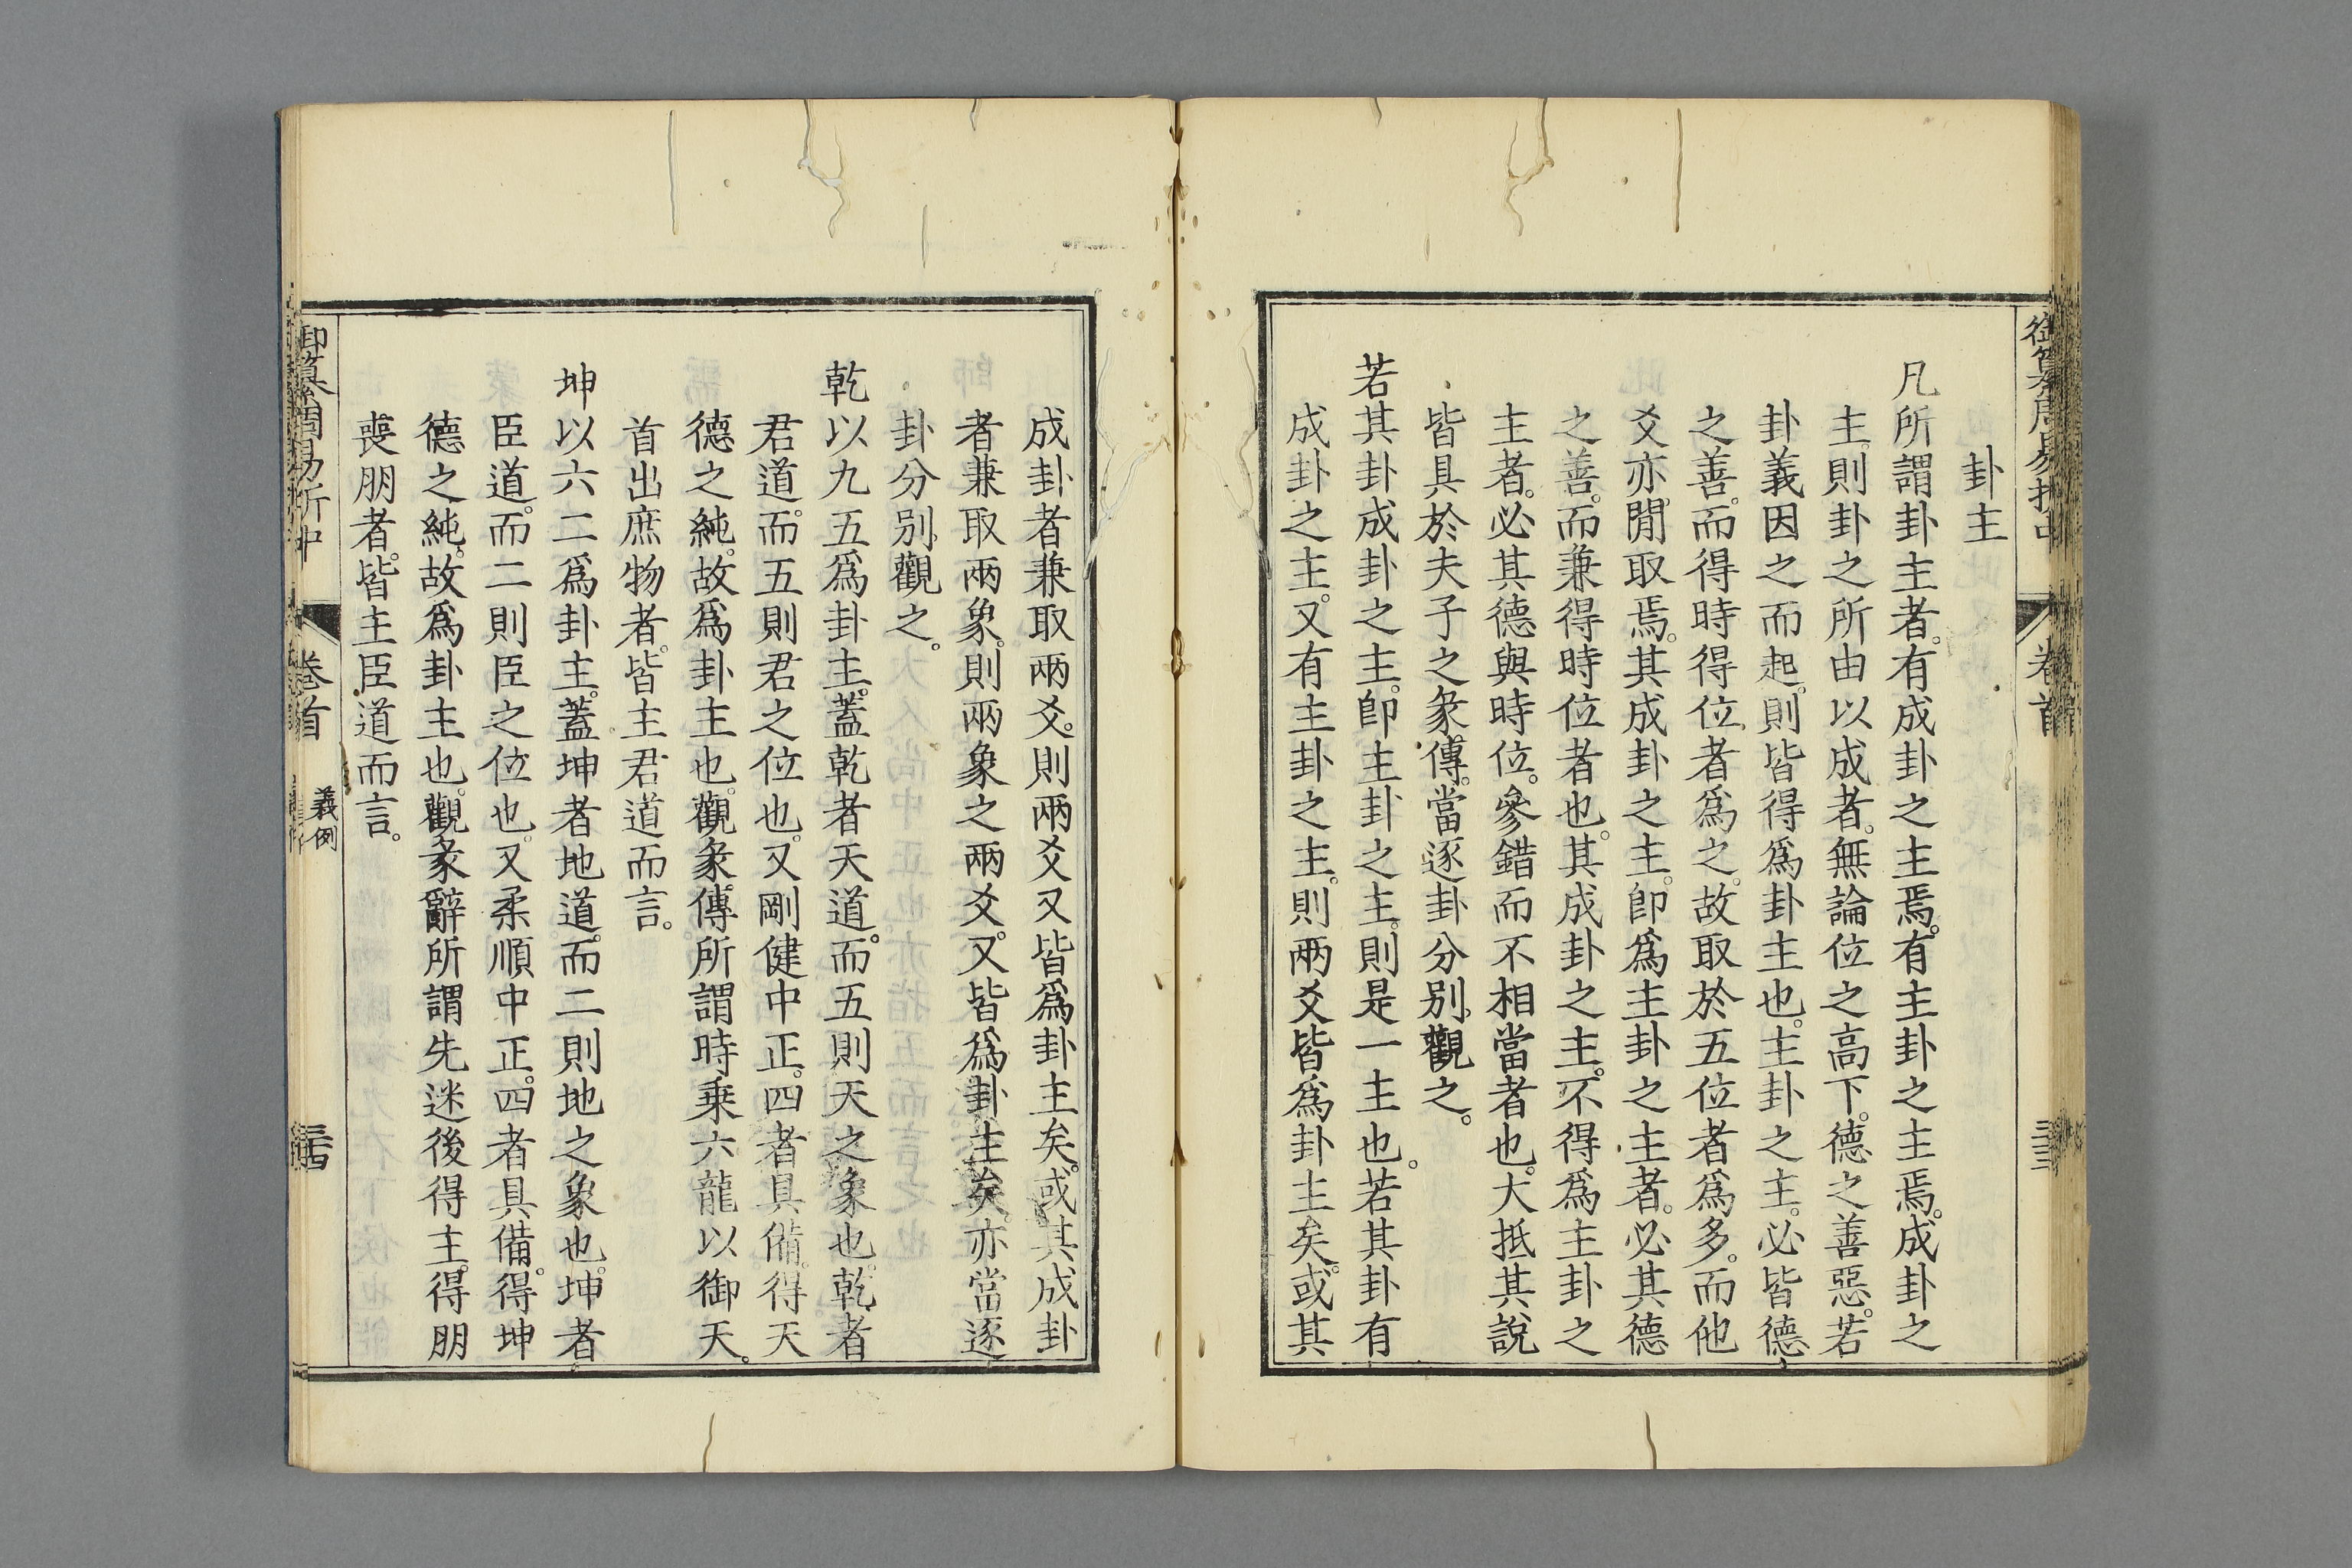 御纂周易折中 卷首 三三
卦主
凡所謂卦主者。有成卦之主焉。有主卦之主焉。成卦之
主。則卦之所由以成者。無論位之高下。德之善惡。若
卦義因之而起。則皆得爲卦主也。主卦之主。必皆德
之善。而得時得位者爲之。故取於五位者爲多。而他
爻亦閒取焉。其成卦之主。卽爲主卦之主者。必其德
之善。而兼得時位者也。其成卦之主。不得爲主卦之
主者。必其德與時位。參錯而不相當者也。大抵其說
皆具於夫子之彖傳。當逐卦分別觀之。
若其卦成卦之主。卽主卦之主。則是一主也。若其卦有
成卦之主。又有主卦之主。則兩爻皆爲卦主矣。或其
成卦者兼取兩爻。則兩爻又皆爲卦主矣。或其成卦
者兼取兩象。則兩象之兩爻。又皆爲卦主矣。亦當逐
卦分別觀之。
乾以九五爲卦主。蓋乾者天道。而五則天之象也。乾者
君道。而五則君之位也。又剛健中正。四者具備。得天
德之純。故爲卦主也。觀彖傳所謂時乗六龍以御天。
首出庶物者。皆主君道而言。
坤以六二爲卦主。蓋坤者地道。而二則地之象也。坤者
臣道。而二則臣之位也。又柔順中正。四者具備。得坤
德之純。故爲卦主也。觀彖辭所謂先迷後得主。得朋
喪朋者。皆主臣道而言。
御纂周易折中 卷首 義例 三四